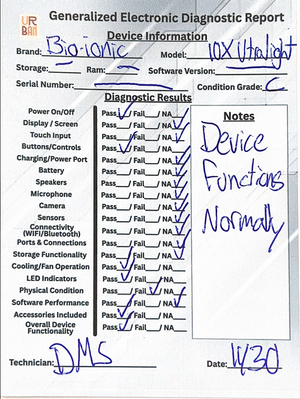 UR
BAN
Generalized Electronic Diagnostic Report
Device Information
Brand: Bio-ionic Model: 10X Ultralight
Storage: — Ram: — Software Version:
Serial Number: — Condition Grade: C
Diagnostic Results
Power On/Off Pass✓/ Fail__/ NA__
Display / Screen Pass__/ Fail__/ NA✓
Touch Input Pass__/ Fail__/ NA✓
Buttons/Controls Pass✓/ Fail__/ NA__
Charging/Power Port Pass__/ Fail__/ NA✓
Battery Pass__/ Fail__/ NA✓
Speakers Pass__/ Fail__/ NA✓
Microphone Pass__/ Fail__/ NA✓
Camera Pass__/ Fail__/ NA✓
Sensors Pass__/ Fail__/ NA✓
Connectivity
(WIFI/Bluetooth) Pass__/ Fail__/ NA✓
Ports & Connections Pass__/ Fail__/ NA✓
Storage Functionality Pass__/ Fail__/ NA✓
Cooling/Fan Operation Pass✓/ Fail__/ NA__
LED Indicators Pass✓/ Fail__/ NA__
Physical Condition Pass__/ Fail✓/ NA__
Software Performance Pass__/ Fail__/ NA✓
Accessories Included Pass✓/ Fail__/ NA__
Overall Device
Functionality Pass✓/ Fail__/ NA__
Notes
Device
Functions
Normally
Technician: DMS Date: 4/30